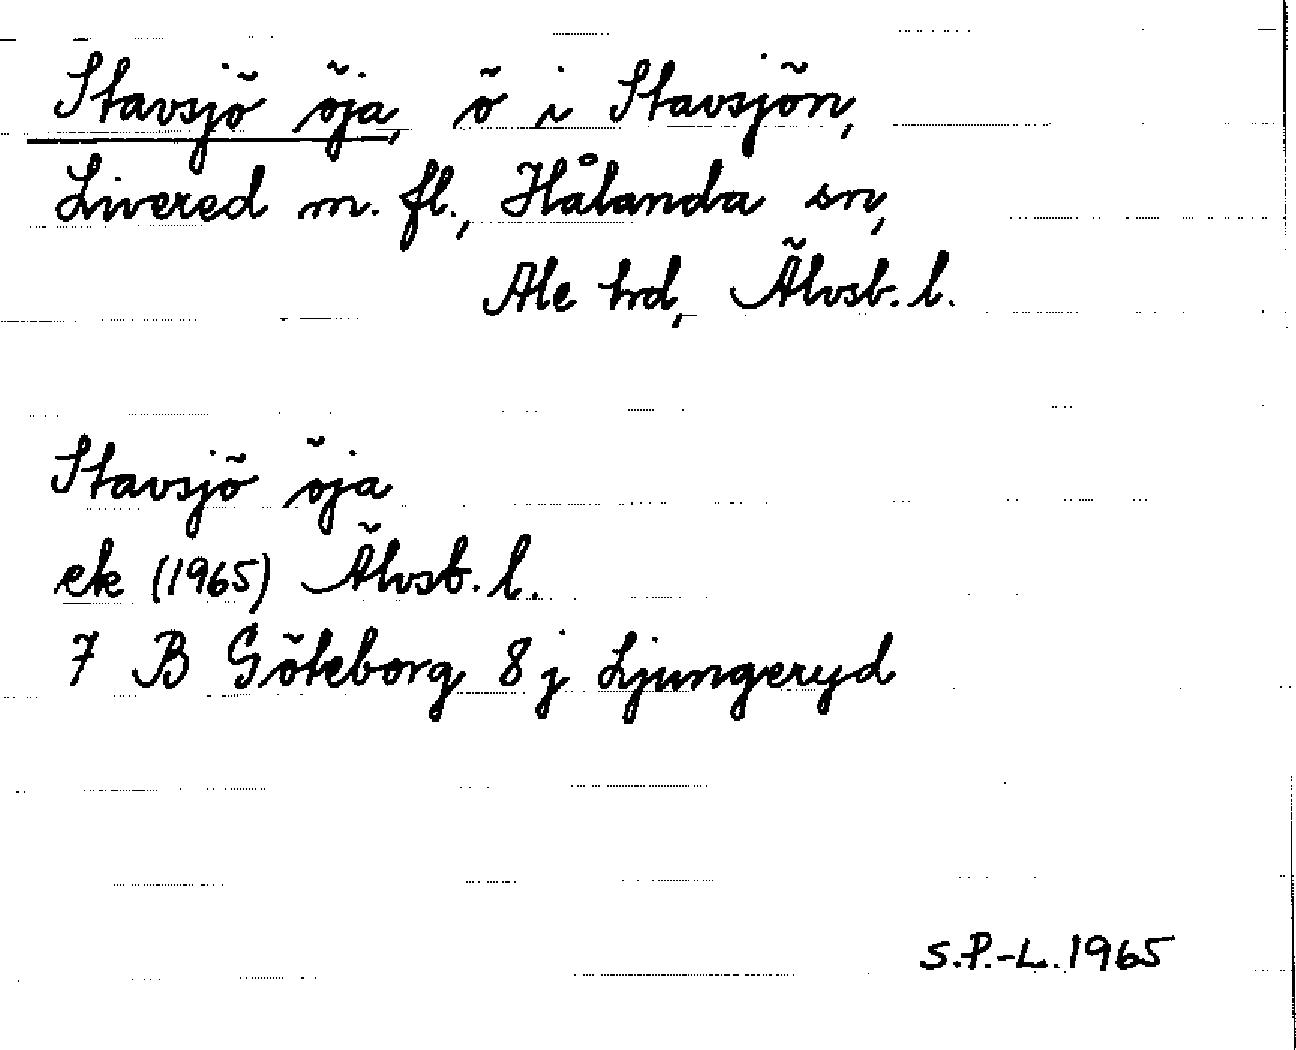 Stavsjö öja, ö i Stavsjön,
Livered m. fl., Hålanda sn,
Ale hd, Älvsb. l.
Stavsjö öja
ek (1965) Älvsb. l.
7 B Göteborg 8 j Ljungeryd
S.P.-L. 1965